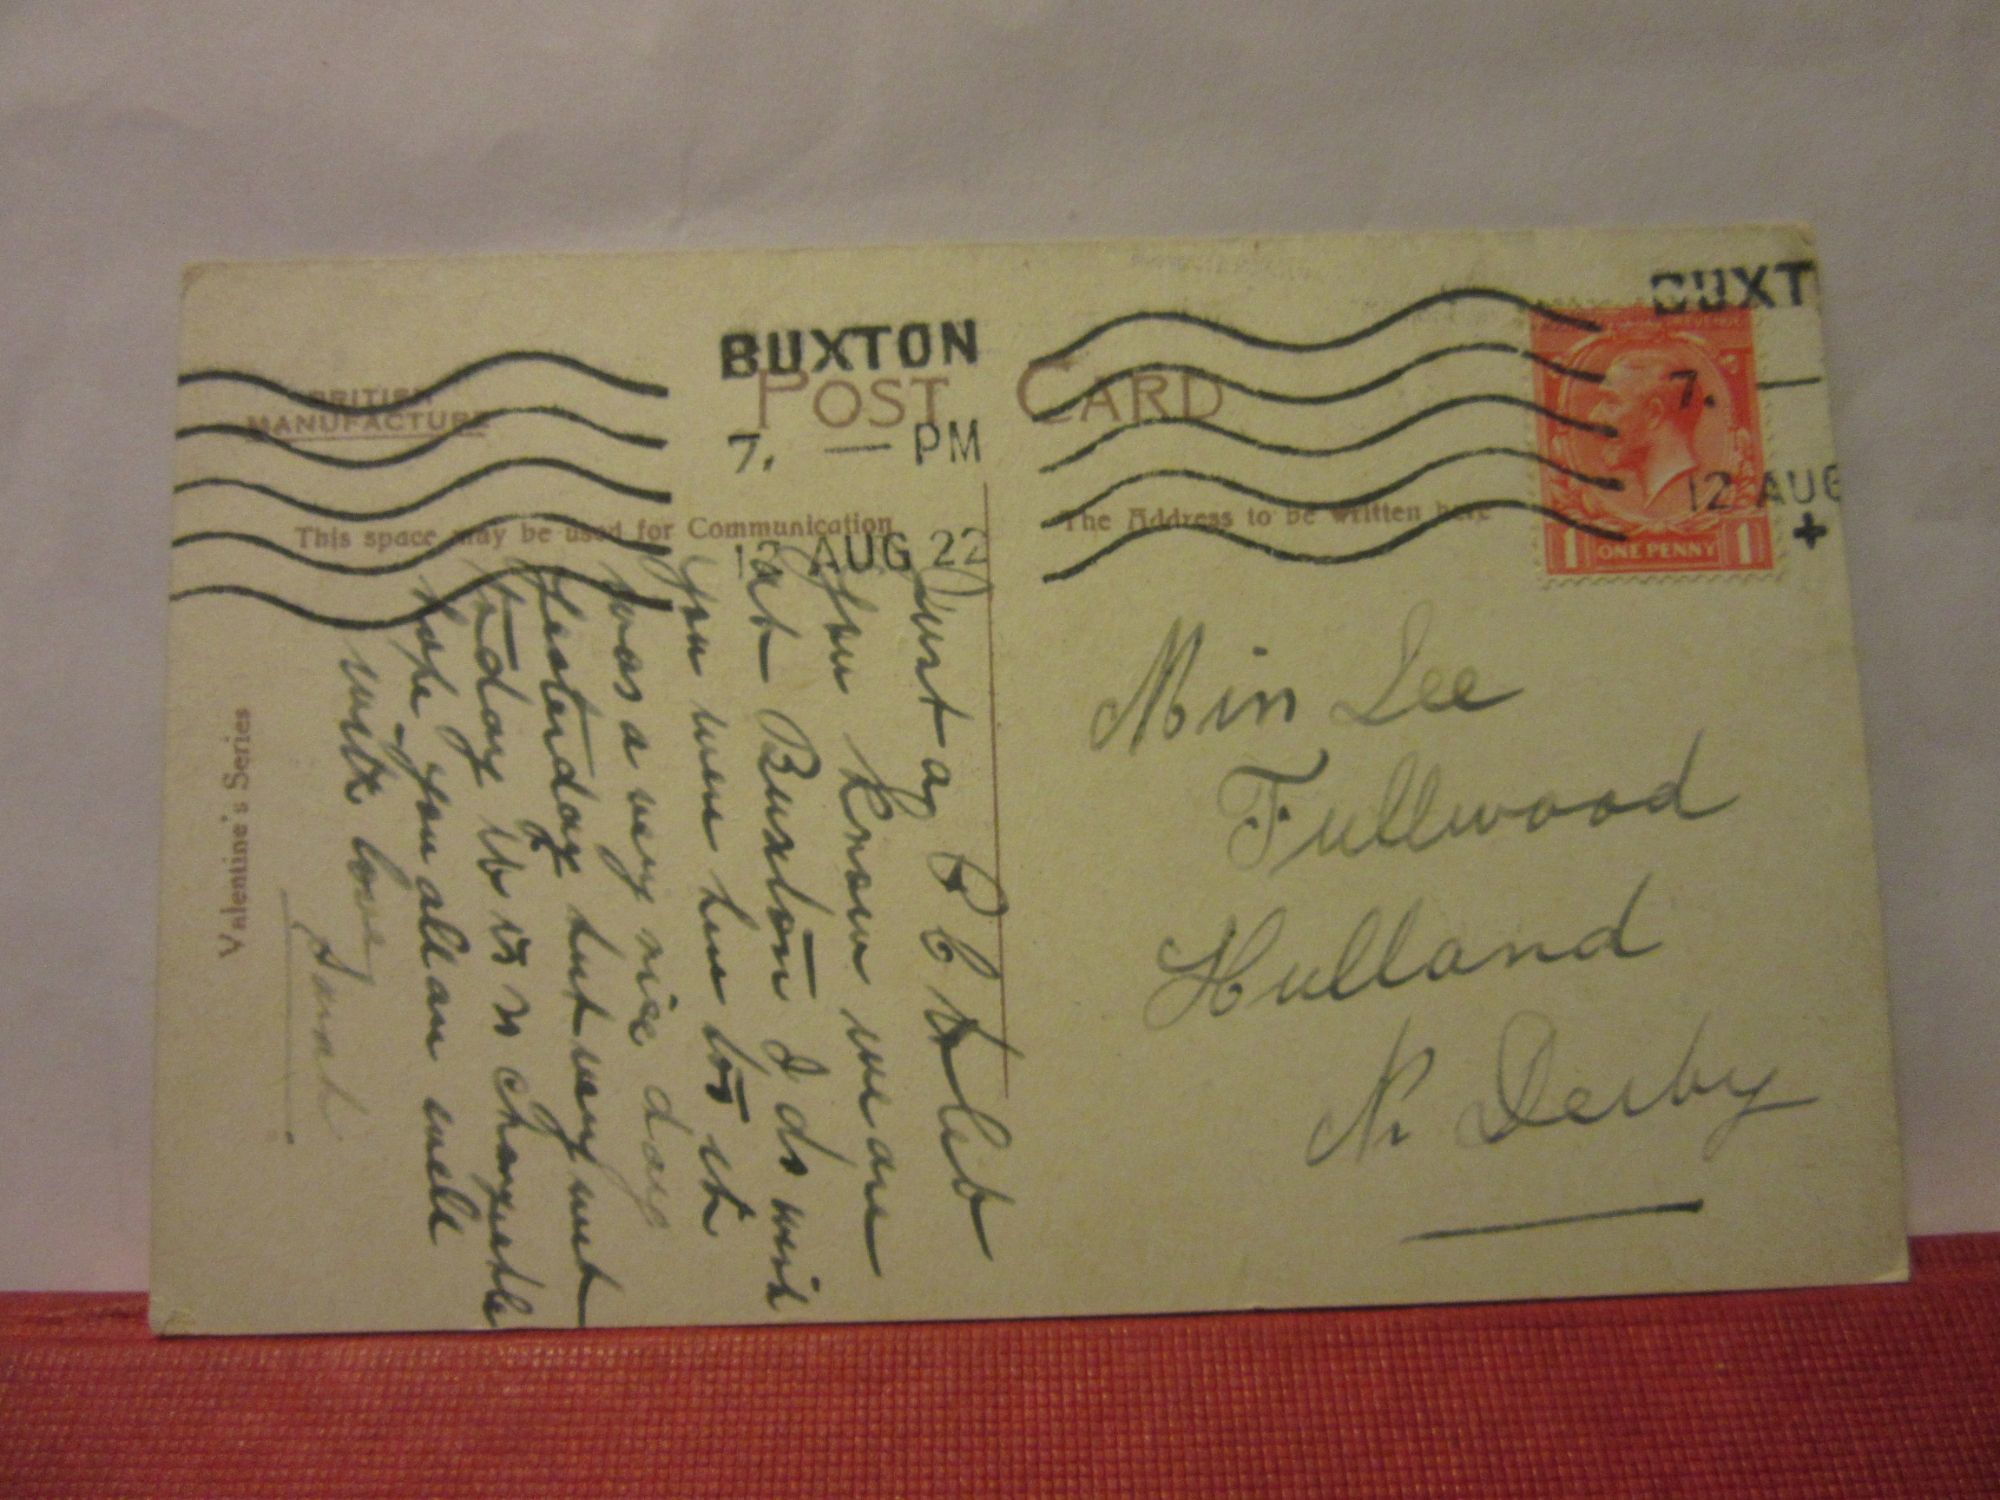 BUXTON
7. — PM
12 AUG 22
BUXT
7. —
12 AUG
+
BRITISH
MANUFACTURE
POST CARD
This space may be used for Communication
The Address to be written here
1 ONE PENNY 1
Valentine's Series
Just a P C to let
you know we are
at Buxton I do wish
you were here to it
was a very nice day
yesterday but very wet
today it is n changeable
hope you all are well
with love
Miss Lee
Fullwood
Hulland
Nr Derby